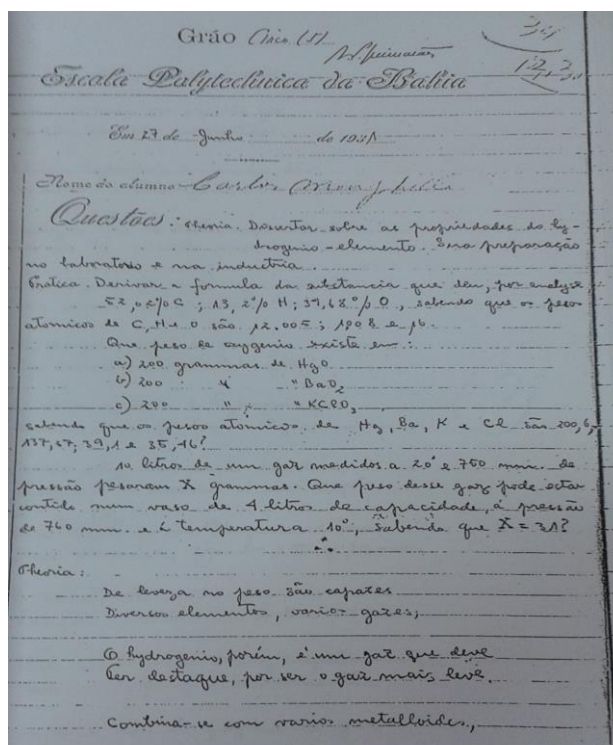 Gráo Cinco (5)
Escola Polytechnica da Bahia
Em 27 de Junho de 1931
Nome do alumno Carlos
Questões: Theoria. Dissertar sobre as propriedades do hy-
drogenio-elemento. Sua preparação
no laboratorio e na industria.
Pratica. Derivar a formula da substancia que deu, por analyse
52,02% C; 13,2% H; 34,68% O, sabendo que os pesos
atomicos de C, H e O são 12.005; 1,008 e 16.
Que peso de oxygenio existe em:
a) 200 grammas de HgO
b) 200 " " BaO2
c) 200 " " KClO3
sabendo que os pesos atomicos de Hg, Ba, K e Cl são 200,6,
137,37, 39,1 e 35,46?
10 litros de um gaz medidos a 20° e 750 mm. de
pressão pesaram X grammas. Que peso desse gaz pode estar
contido num vaso de 4 litros de capacidade, á pressão
de 760 mm. e á temperatura 10°, sabendo que X = 31?
Theoria:
De leveza no peso são capazes
Diversos elementos, varios gazes,
O hydrogenio, porém, é um gaz que deve
Ter destaque, por ser o gaz mais leve.
Combina-se com varios metalloides,